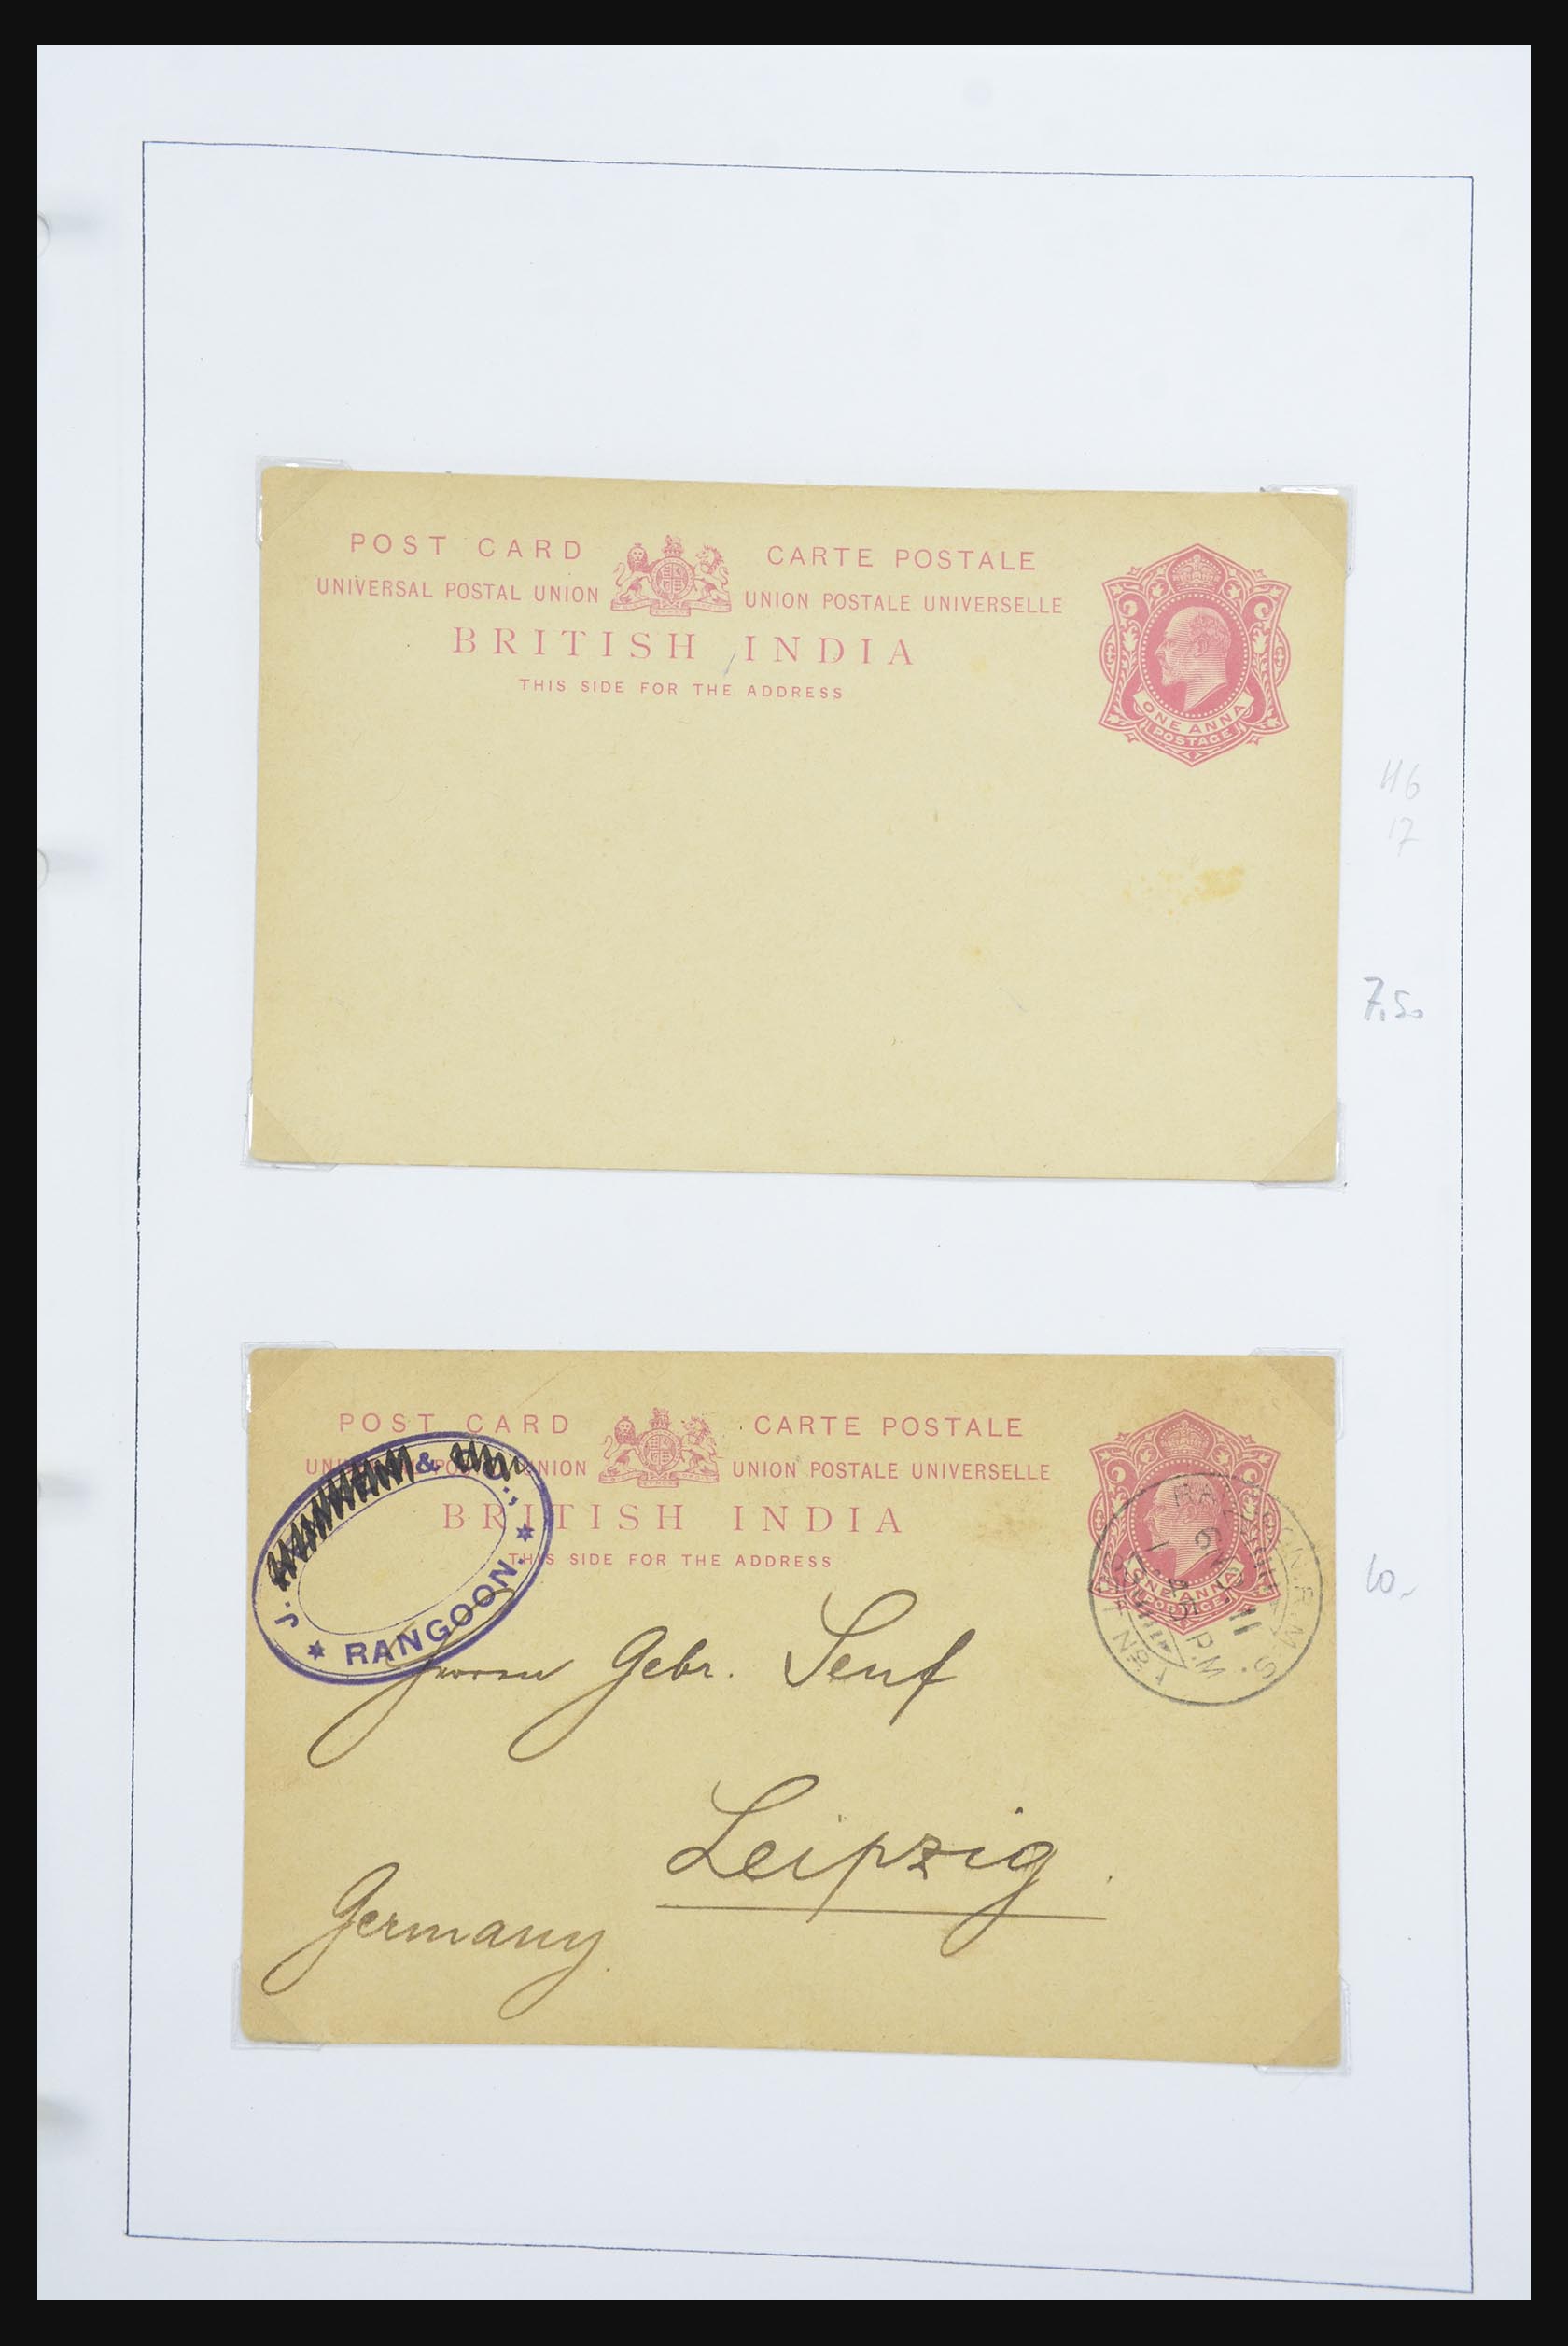 POST CARD CARTE POSTALE
UNIVERSAL POSTAL UNION UNION POSTALE UNIVERSELLE
BRITISH INDIA
THIS SIDE FOR THE ADDRESS
ONE ANNA
POSTAGE
H6
17
7,50
POST CARD CARTE POSTALE
UNION UNION POSTALE UNIVERSELLE
BRITISH INDIA
THIS SIDE FOR THE ADDRESS
ONE ANNA
POSTAGE
J. &
RANGOON.
R.M.S.
P.M
Herren Gebr. Senf
Leipzig.
Germany.
10,-